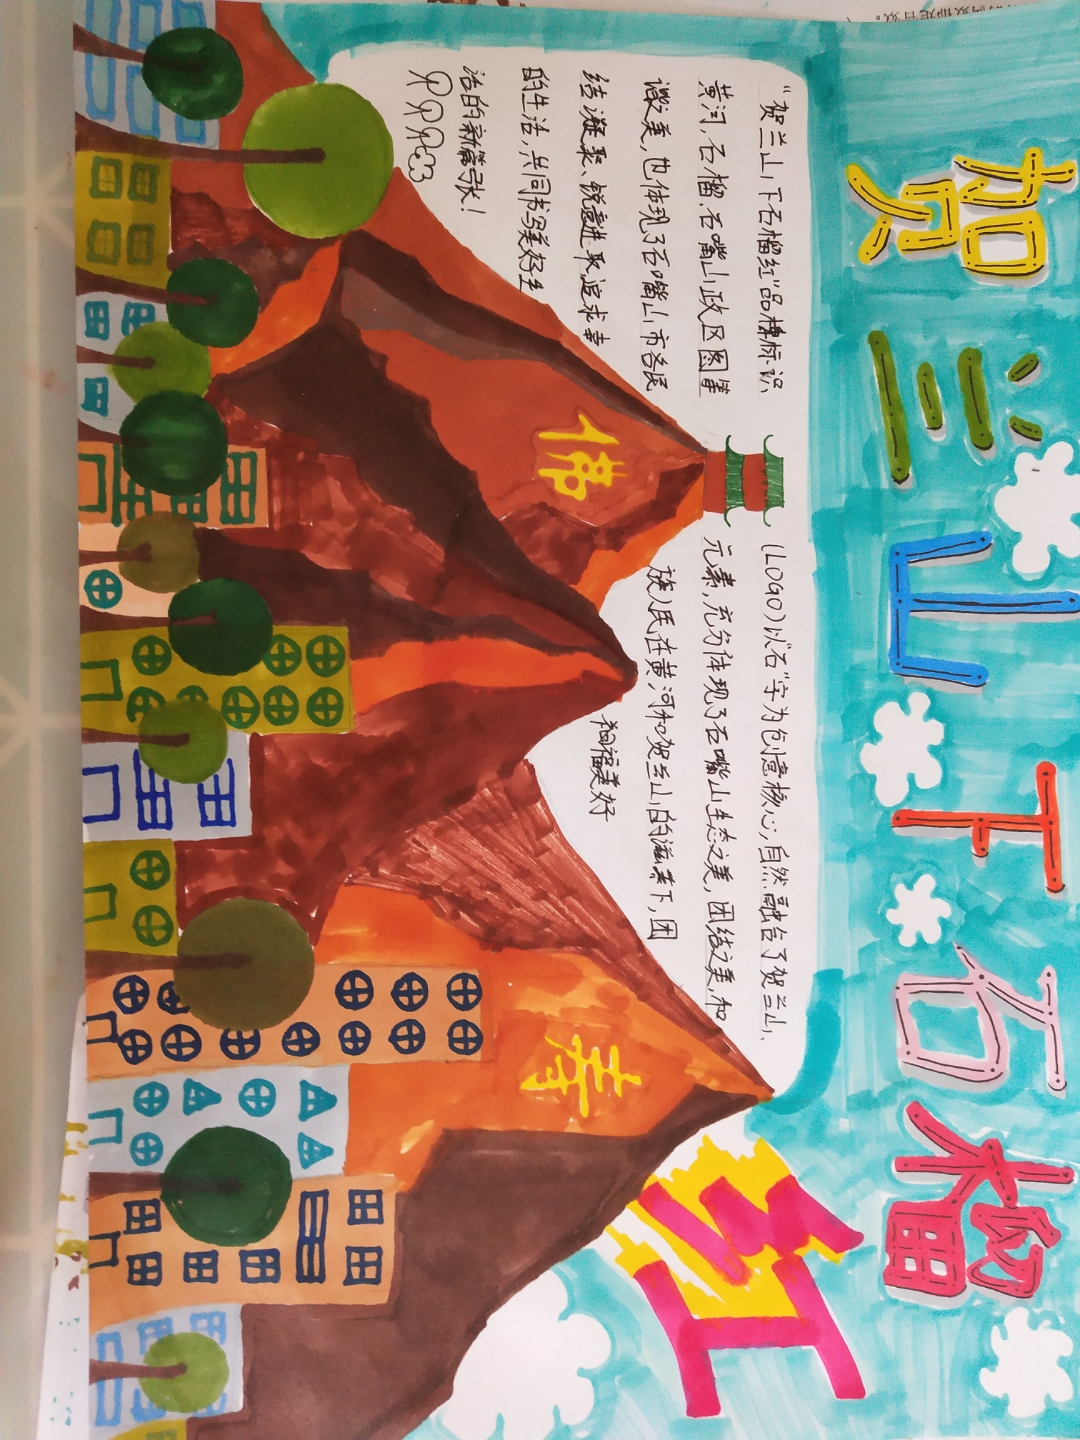 贺兰山下石榴
红
“贺兰山下石榴红”品牌标识(LOGO)以“石”字为创意核心,自然融合了贺兰山、
黄河,石榴,石嘴山政区图等元素,充分体现了石嘴山生态之美,团结之美,和
谐之美,也体现了石嘴山市各民族人民在黄河和贺兰山的滋养下,团
结凝聚、锐意进取追求幸福美好
的生活,共同书写美好生
活的新篇章!
佛
寿